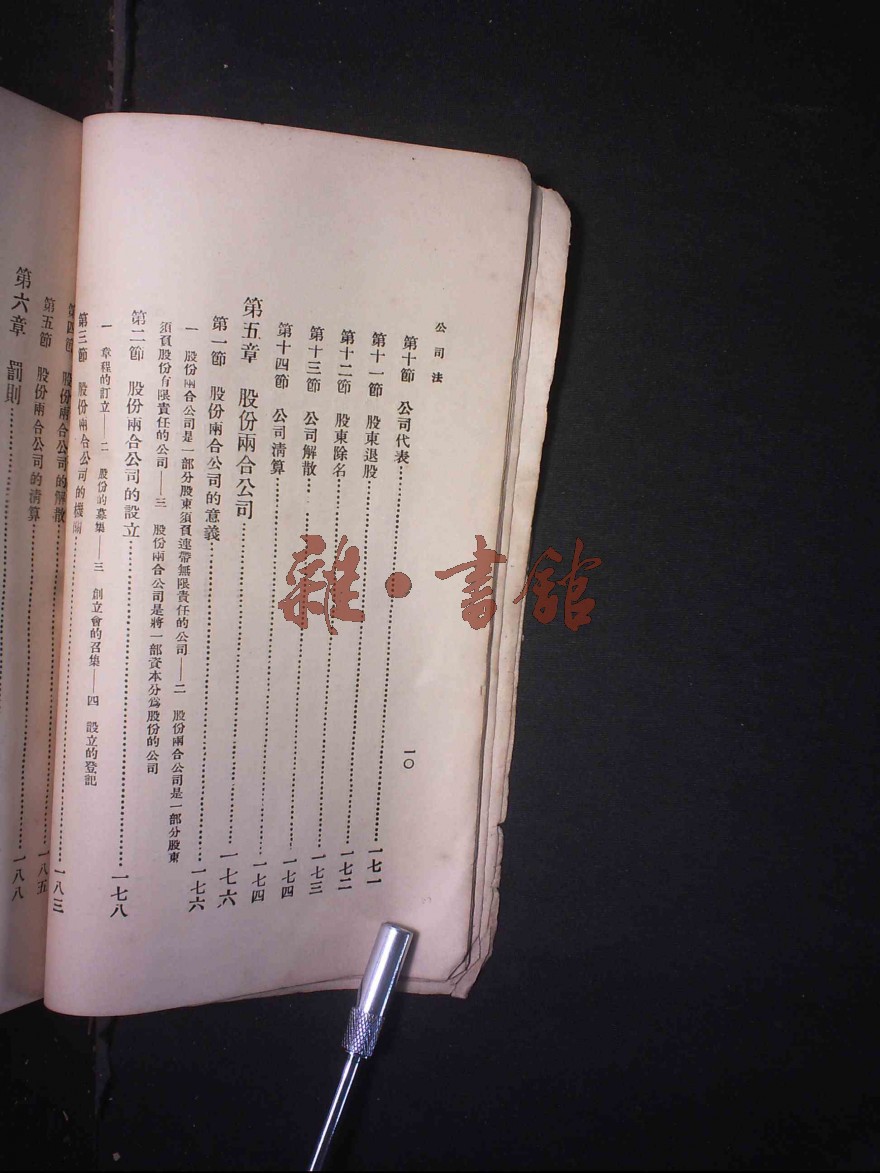 公司法
一〇
第十節 公司代表……………………一七一
第十一節 股東退股……………………一七二
第十二節 股東除名……………………一七三
第十三節 公司解散……………………一七四
第十四節 公司清算……………………一七四
第五章 股份兩合公司……………………一七六
第一節 股份兩合公司的意義……………………一七六
一 股份兩合公司是一部分股東須負連帶無限責任的公司——二 股份兩合公司是一部分股東
須負股份有限責任的公司——三 股份兩合公司是將一部資本分爲股份的公司
第二節 股份兩合公司的設立……………………一七八
一 章程的訂立——二 股份的募集——三 創立會的召集——四 設立的登記
第三節 股份兩合公司的機關……………………一八三
第四節 股份兩合公司的解散……………………一八五
第五節 股份兩合公司的清算……………………一八八
第六章 罰則……………………
雜·書館